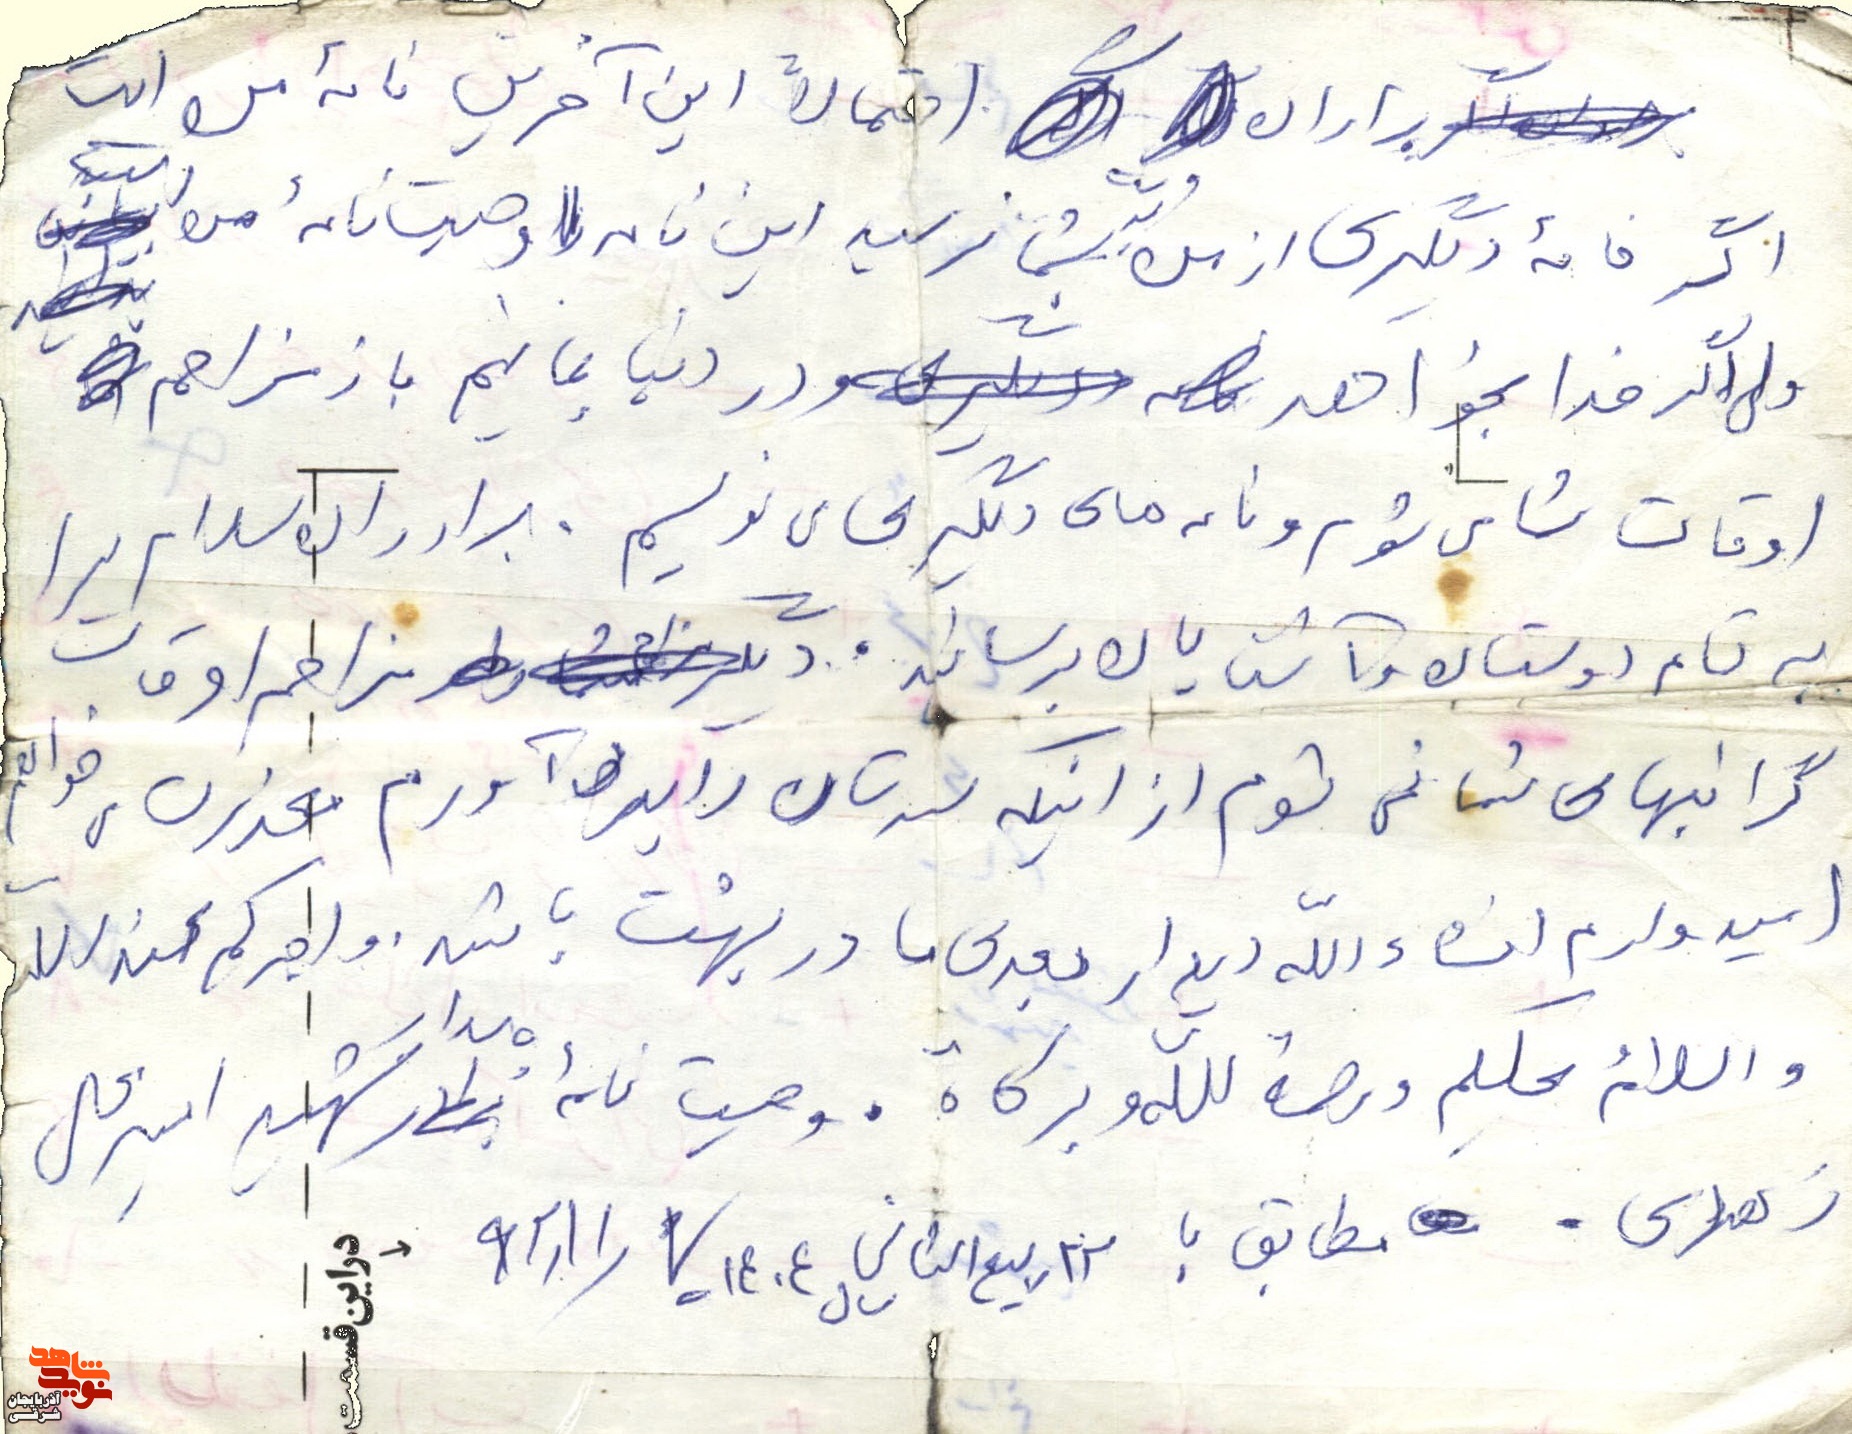 برادران احتمالاً این آخرین نامهٔ من است
اگر نامهٔ دیگری از من بشما نرسید این نامه وصیتنامهٔ من است
ولی اگر خدا بخواهد و در دنیا بمانیم باز مزاحم
اوقات شما می شوم و نامه های دیگری می نویسم . برادران سلام مرا
به تمام دوستان و آشنایان برسانید . دیگر مزاحم اوقات
گرانبهای شما نمی شوم از اینکه سرتان را بدرد آوردم معذرت می خواهم
امیدوارم انشاءالله دیدار بعدی ما در بهشت باشد . واجرکم عندالله
والسلام علیکم ورحمة الله وبرکاة . وصیت نامهٔ پاسدار شهید امیرعلی
زهدی . مطابق با ربیع الثانی سال ١٤٠٤
در این قسمت
شاهد
نوید
آذربایجان
شرقی